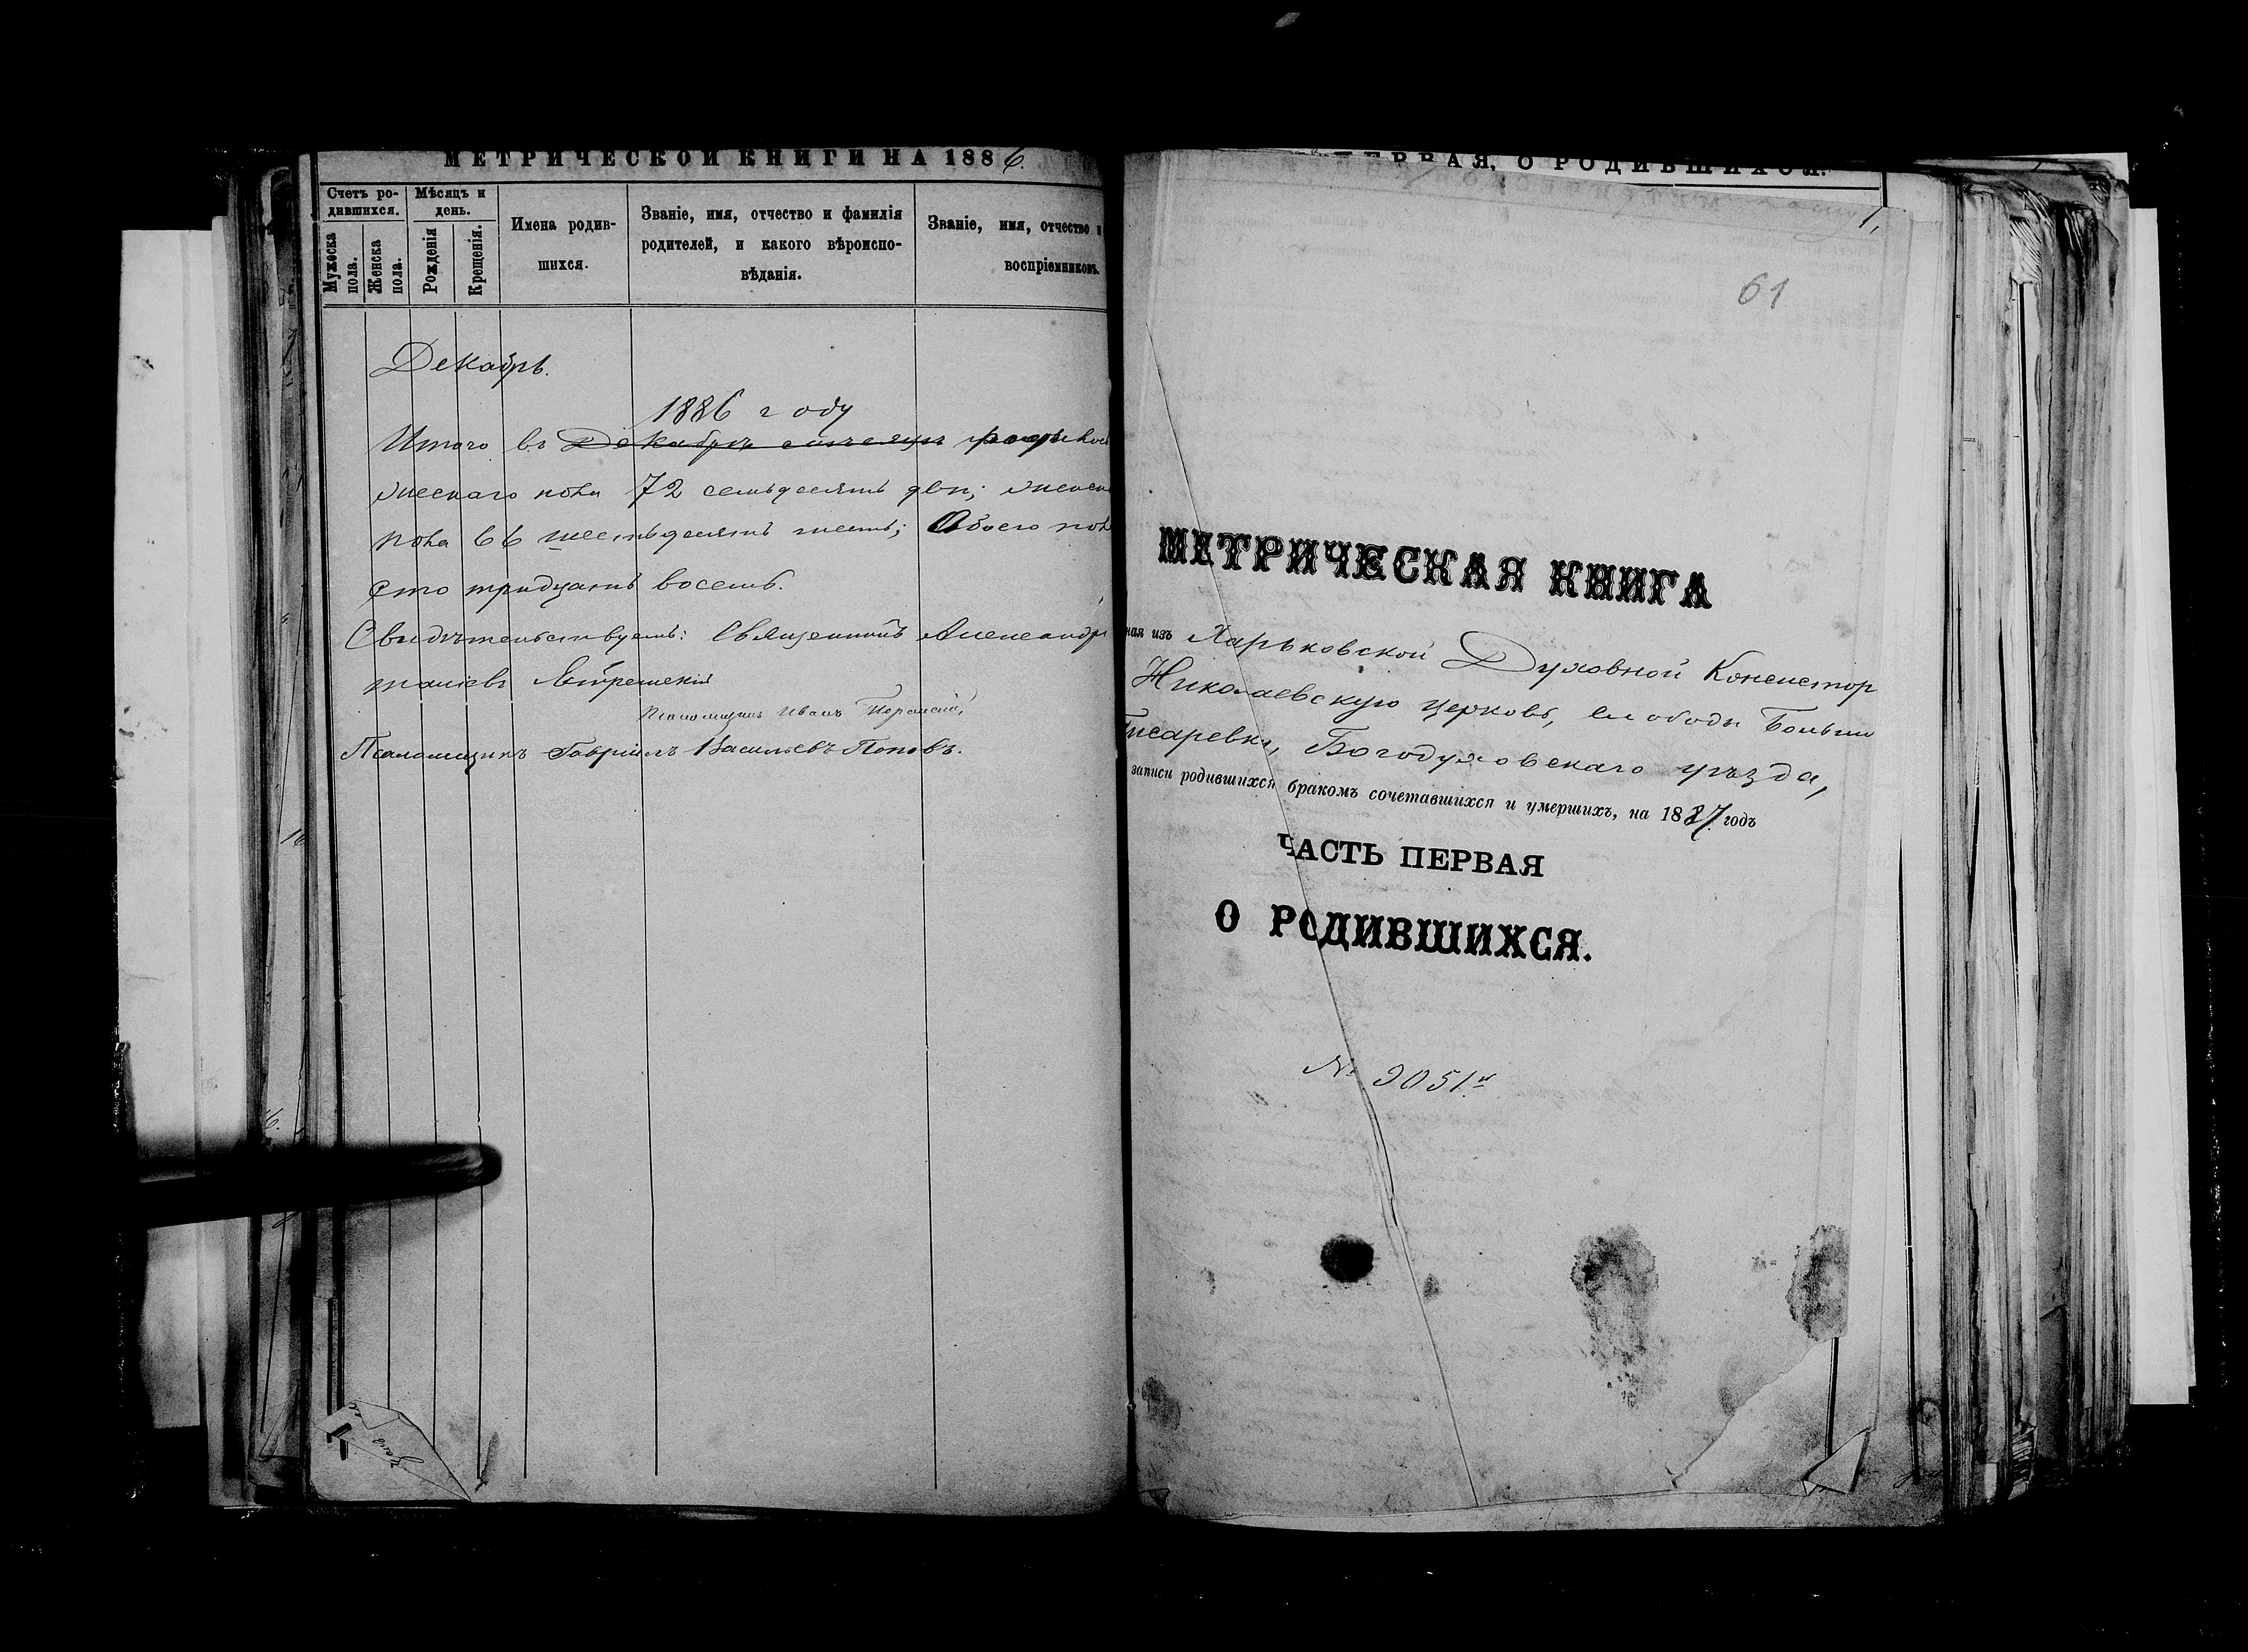 МЕТРИЧЕСКОЙ КНИГИ НА 1886.
Счетъ ро-
дившихся.
Мужеска
пола.
Женска
пола.
Мѣсяцъ и
день.
Рожденія
Крещенія.
Имена родив-
шихся.
Званіе, имя, отчество и фамилія
родителей, и какого вѣроиспо-
вѣданія.
Званіе, имя, отчество и
воспріемниковъ.
Декабрь.
1886 году
Итого въ Декабрѣ мѣсяцѣ
пола 72 семьдесятъ два;
пола 66 шестьдесятъ шесть; Обоего пол
сто тридцать восемь.
Свидѣтельствуемъ: Священникъ Александръ
Иванъ
Псаломщикъ Гавріилъ Васильевъ Поповъ.
ПЕРВАЯ, О РОДИВШИХСЯ.
1,
61
МЕТРИЧЕСКАЯ КНИГА
ная изъ Харьковской Духовной Консистор
Николаевскую церковь, слободы Больш
Писаревки, Богодуховскаго уѣзда,
записи родившихся бракомъ сочетавшихся и умершихъ, на 1887 годъ
ЧАСТЬ ПЕРВАЯ
О РОДИВШИХСЯ.
№ 9051.й